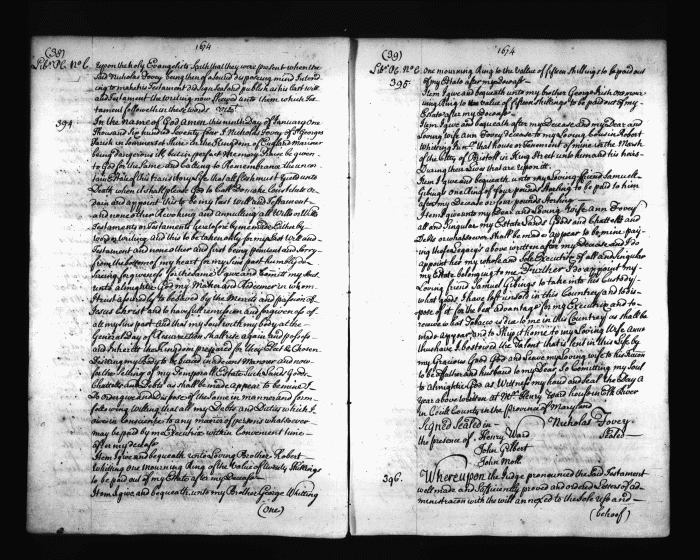 (38) 1674
Lib. H. No. 6. upon the holy Evangelists Saith that they were present when the
Said Nicholas Tovey being then of a Sound disposeing mind Intend
ing to make his Testament Did Sign Seal and publish as his last will
and Testament the writing now Shewed unto them which Tes
tament followeth in these words Viz.
394 In the name of God Amen this ninth Day of January One
Thousand Six hundred Seventy four I Nicholas Tovey of St Georges
Parish in Sumersetshire in the Kingdom of England Marriner
being dangerous ill but in perfect Memory Praise be given
to God for the Same and Calling to Remembrance the uncer
tain Estate of this transitory life that all flesh must Yield unto
Death when it shall please God to Call Do make Constitute Or
dain and appoint this to be my last will and Testament
and none other Revoking and Annulling all Wills or Wills
Testaments or Testaments heretofore by me made Either by
word or writing and this to be taken only for my last Will and
Testament and none other and first being penitent and Sorry
from the bottom of my heart for my Sins past humbly de
sireing forgiveness for the Same I give and Comit my Soul
unto almighty God my Maker and Redeemer in whom
I trust assuredly to be Saved by the Merits and passion of
Jesus Christ and to have full remission and forgiveness of
all my Sins past and that my Soul with my body at the
General day of Resurrection shall rise again and possess
and Inherit the Kingdom prepared for the Elect & Chosen
Willing my Body to be buried in decent Manner and now
for the Setling of my Temporal Estate Such Lands Goods
Chattels and Debts as shall be made appear to be mine I
Do order give and dispose of the Same in manner and form
following willing that all my Debts and Duties which I
owe in Conscience to any manner of person whatsoever
may be paid by me Executrix within Convenient time
after my decease
Item I give and bequeath unto Loving Brother Robert
Whitting one mourning Ring of the Value of twenty Shillings
to be paid out of my Estate after my Decease
Item I give and bequeath unto my Brother George Whitting
(One)
(39) 1674
Lib. H. No. 6 One mourning Ring to the value of fifteen Shillings to be paid out
395 of my Estate after my decease
Item I give and bequeath unto my brother George Rich one mour
ning Ring to the value of fifteen Shillings to be paid out of my
Estate after my decease
Item I give and bequeath after my decease and my Dear and
Loving wife Ann Tovey decease to my Loving Cousin Robert
Whiting Junr. that house or Tenement of mine in the Marsh
of the City of Bristoll in King Street unto him and his heirs
During them Lives that are upon it
Item I give and bequeath unto my Loving friend Samuell
Gibings one Ring of four pounds Sterling to be paid to him
after my decease or four pounds Sterling
Item I give unto my Dear and Loving wife Ann Tovey
all and Singular my Estate Lands Goods and Chattells and
Debts or whatsoever Shall be made appear to be mine pay
ing the Legacys above written after my decease and I do
appoint her my whole and Sole Executrix of all and Singular
my Estate belonging to me Further I do appoint my
Loving friend Samuel Gibings to take into his Custody
what goods I have left unsold in this Country and to dis
pose of it for the best advantage for my Executrix and to
receive what Tobacco is due to me in this Country as shall be
made appear and to Ship it home to my Loving Wife Ann
thus have I bestowed the Talent that is lent in this Life by
my Gracious Good God and Leave my Loving wife to his Protection
to be a father and husband to my Dear So Comitting my Soul
to Almighty God as Witness my hand and Seal the Day &
year above written at Mr. Henry Ward house in Elk River
in Cecil County in the province of Maryland
Signed Sealed in Nicholas Tovey
the presence of Henry Ward Sealed
John Gilbert
John Moll
396. Whereupon the Judge pronounced the Said Testament
well made and Sufficiently proved and ordered Letters of ad
ministracon with the will annexed to the Sole use and
(behoof)